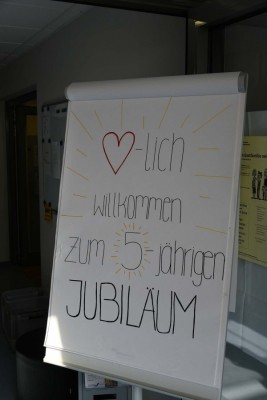 ♥-lich
willkommen
zum 5-jährigen
JUBILÄUM